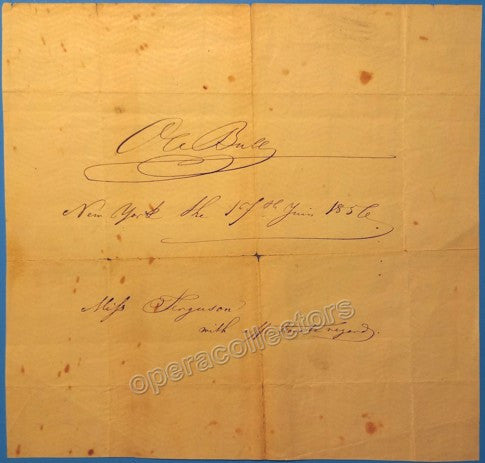 Ole Bull
New York the 19th Juin 1856.
Miss Ferguson
with regard.
operacollectors